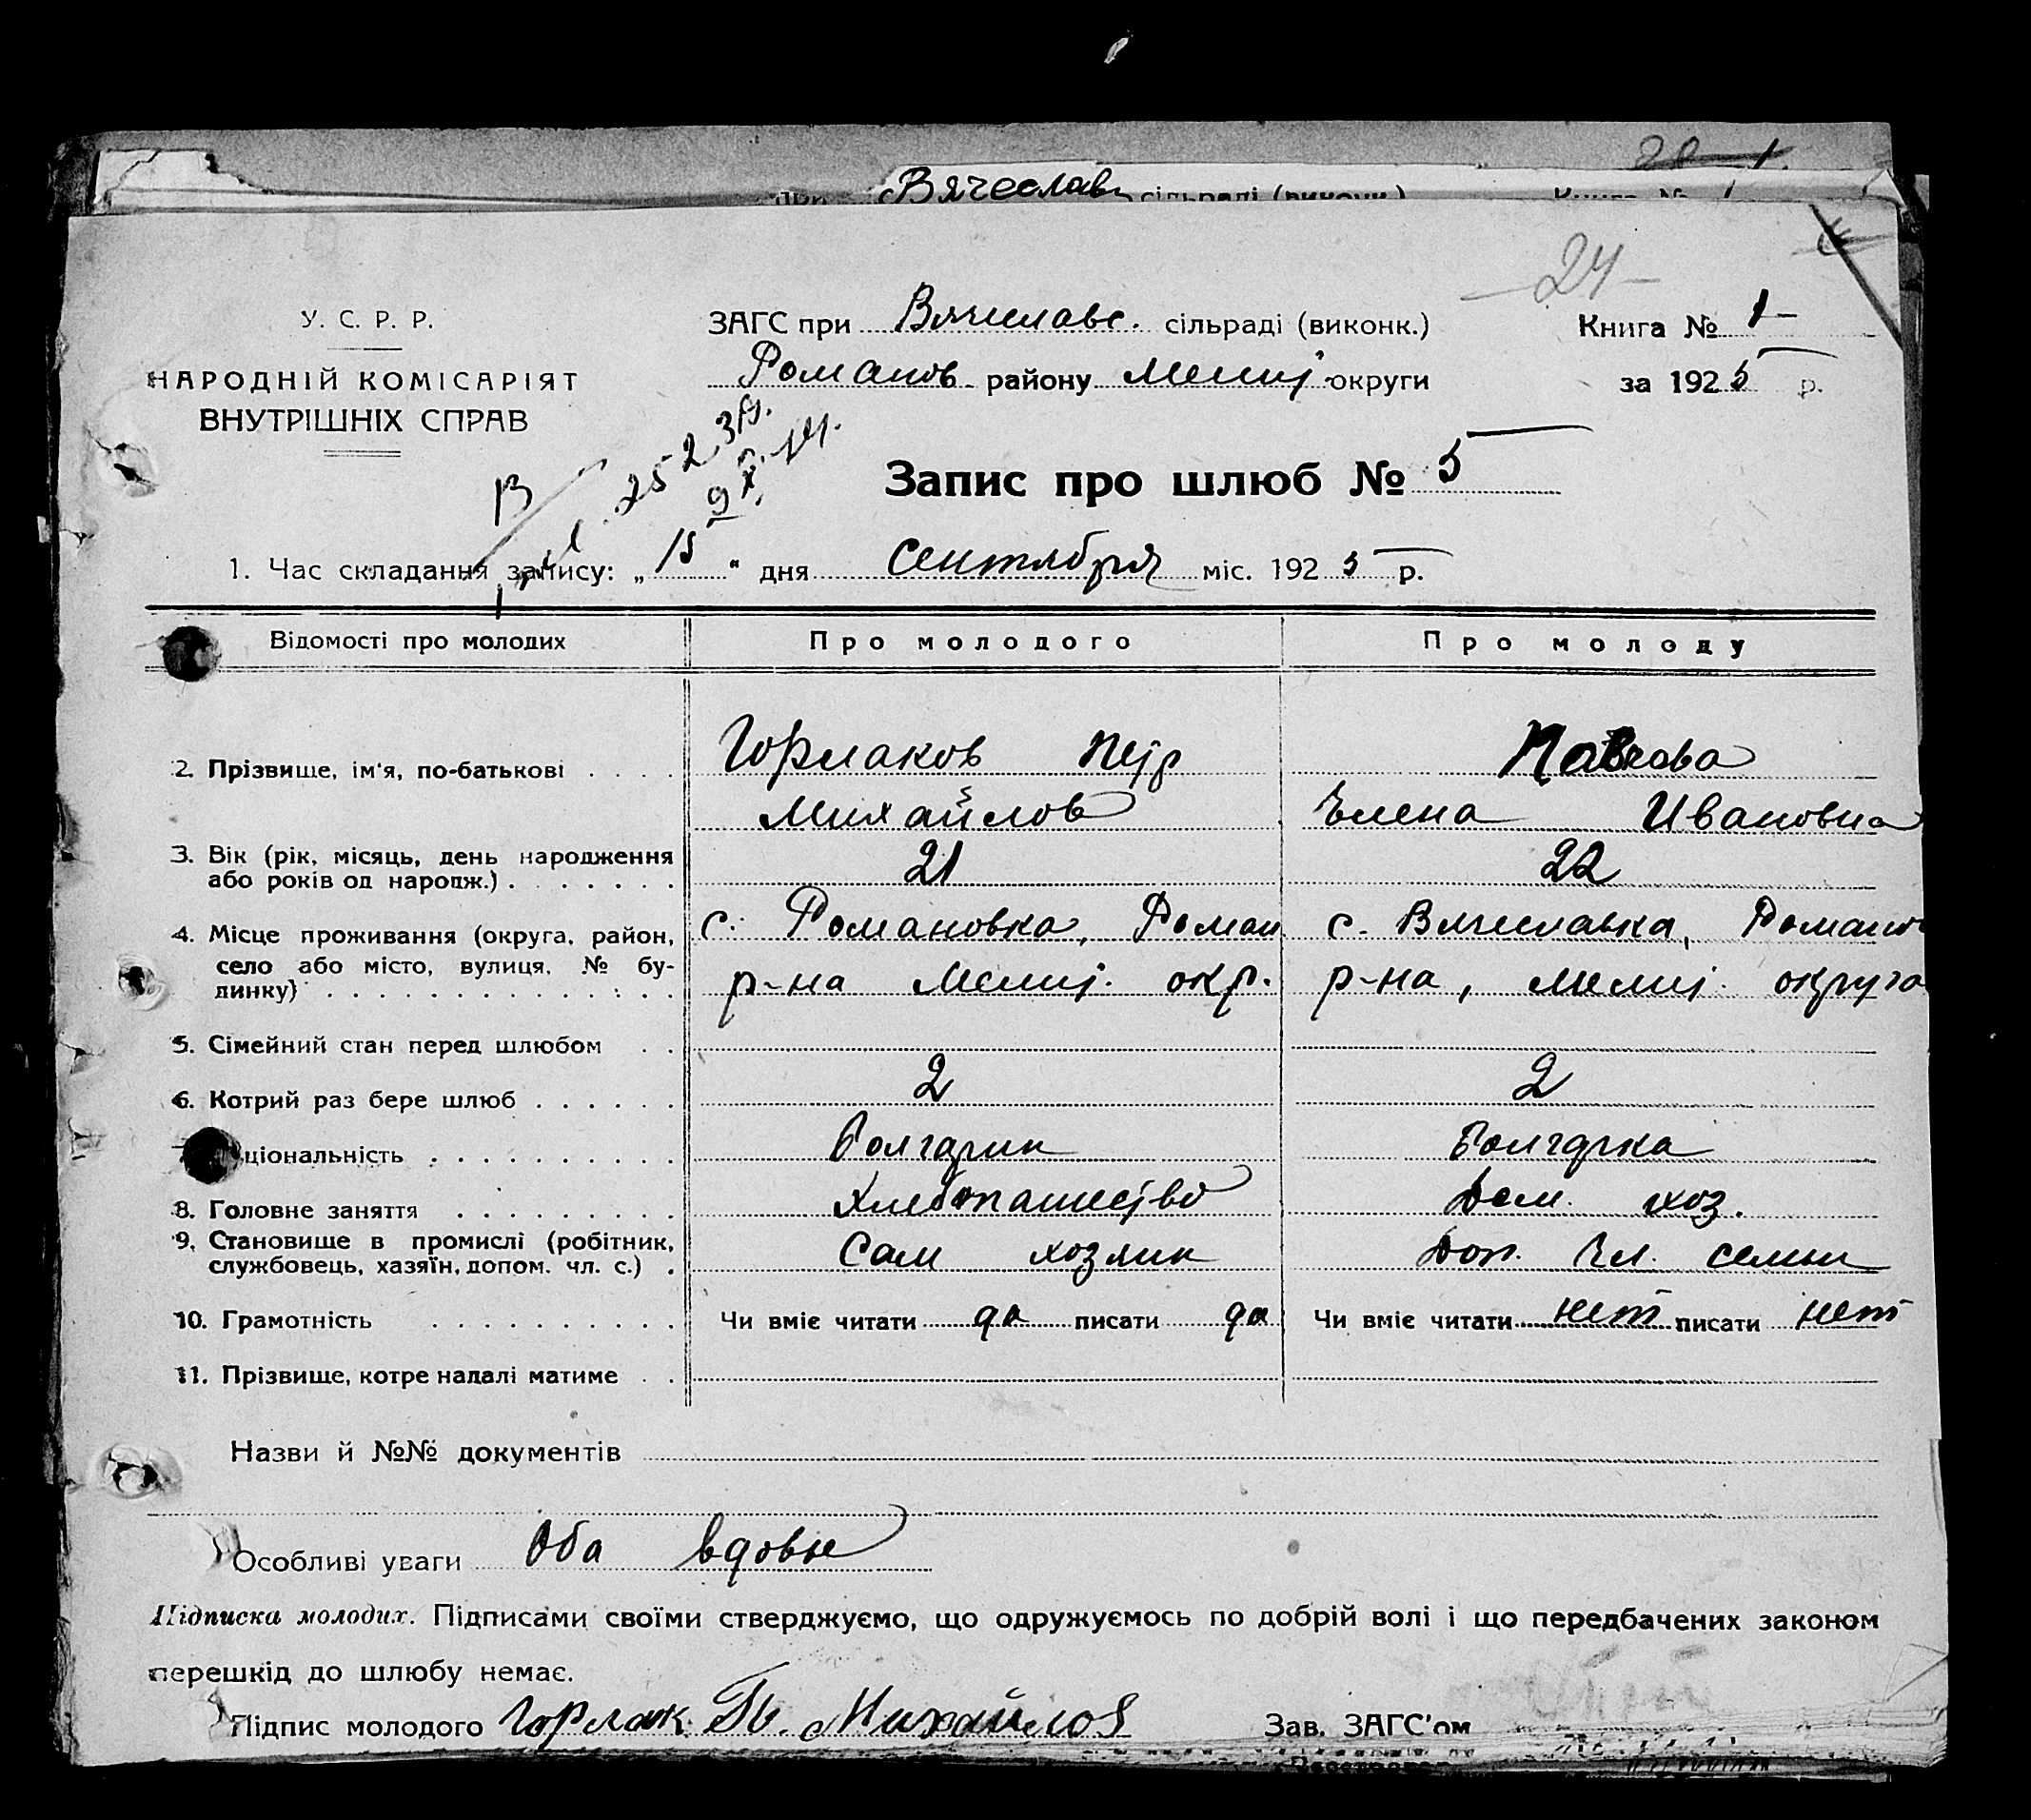 Вячеслав сільраді (виконк.) Книга №
24
У. С. Р. Р.
НАРОДНІЙ КОМІСАРІЯТ
ВНУТРІШНІХ СПРАВ
ЗАГС при Вячеславс. сільраді (виконк.)
Романов району Мелит округи
Книга № 1
за 1925 р.
Запис про шлюб № 5
1. Час складання запису: „15“ дня Сентября міс. 1925 р.
Відомості про молодих Про молодого Про молоду
2. Прізвище, ім'я, по-батькові Горлаков Петр Павлова
Михайлов Елена Ивановна
3. Вік (рік, місяць, день народження
або років од народж.) 21 22
4. Місце проживання (округа, район, с. Романовка, Роман с. Вячеславка, Романов
село або місто, вулиця, № бу-
динку) р-на Мелит. окр. р-на, Мелит. округа
5. Сімейний стан перед шлюбом
6. Котрий раз бере шлюб 2 2
ціональність болгарин болгарка
8. Головне заняття Хлебопашество Дом. хоз.
9. Становище в промислі (робітник,
службовець, хазяїн, допом. чл. с.) Сам хозяин Доп. чл. семьи
10. Грамотність Чи вміє читати да писати да Чи вміє читати нет писати нет
11. Прізвище, котре надалі матиме
Назви й №№ документів
Особливі уваги Оба вдовы
Підписка молодих. Підписами своїми стверджуємо, що одружуємось по добрій волі і що передбачених законом
перешкід до шлюбу немає.
Підпис молодого Горлак Михайлов Зав. ЗАГС'ом